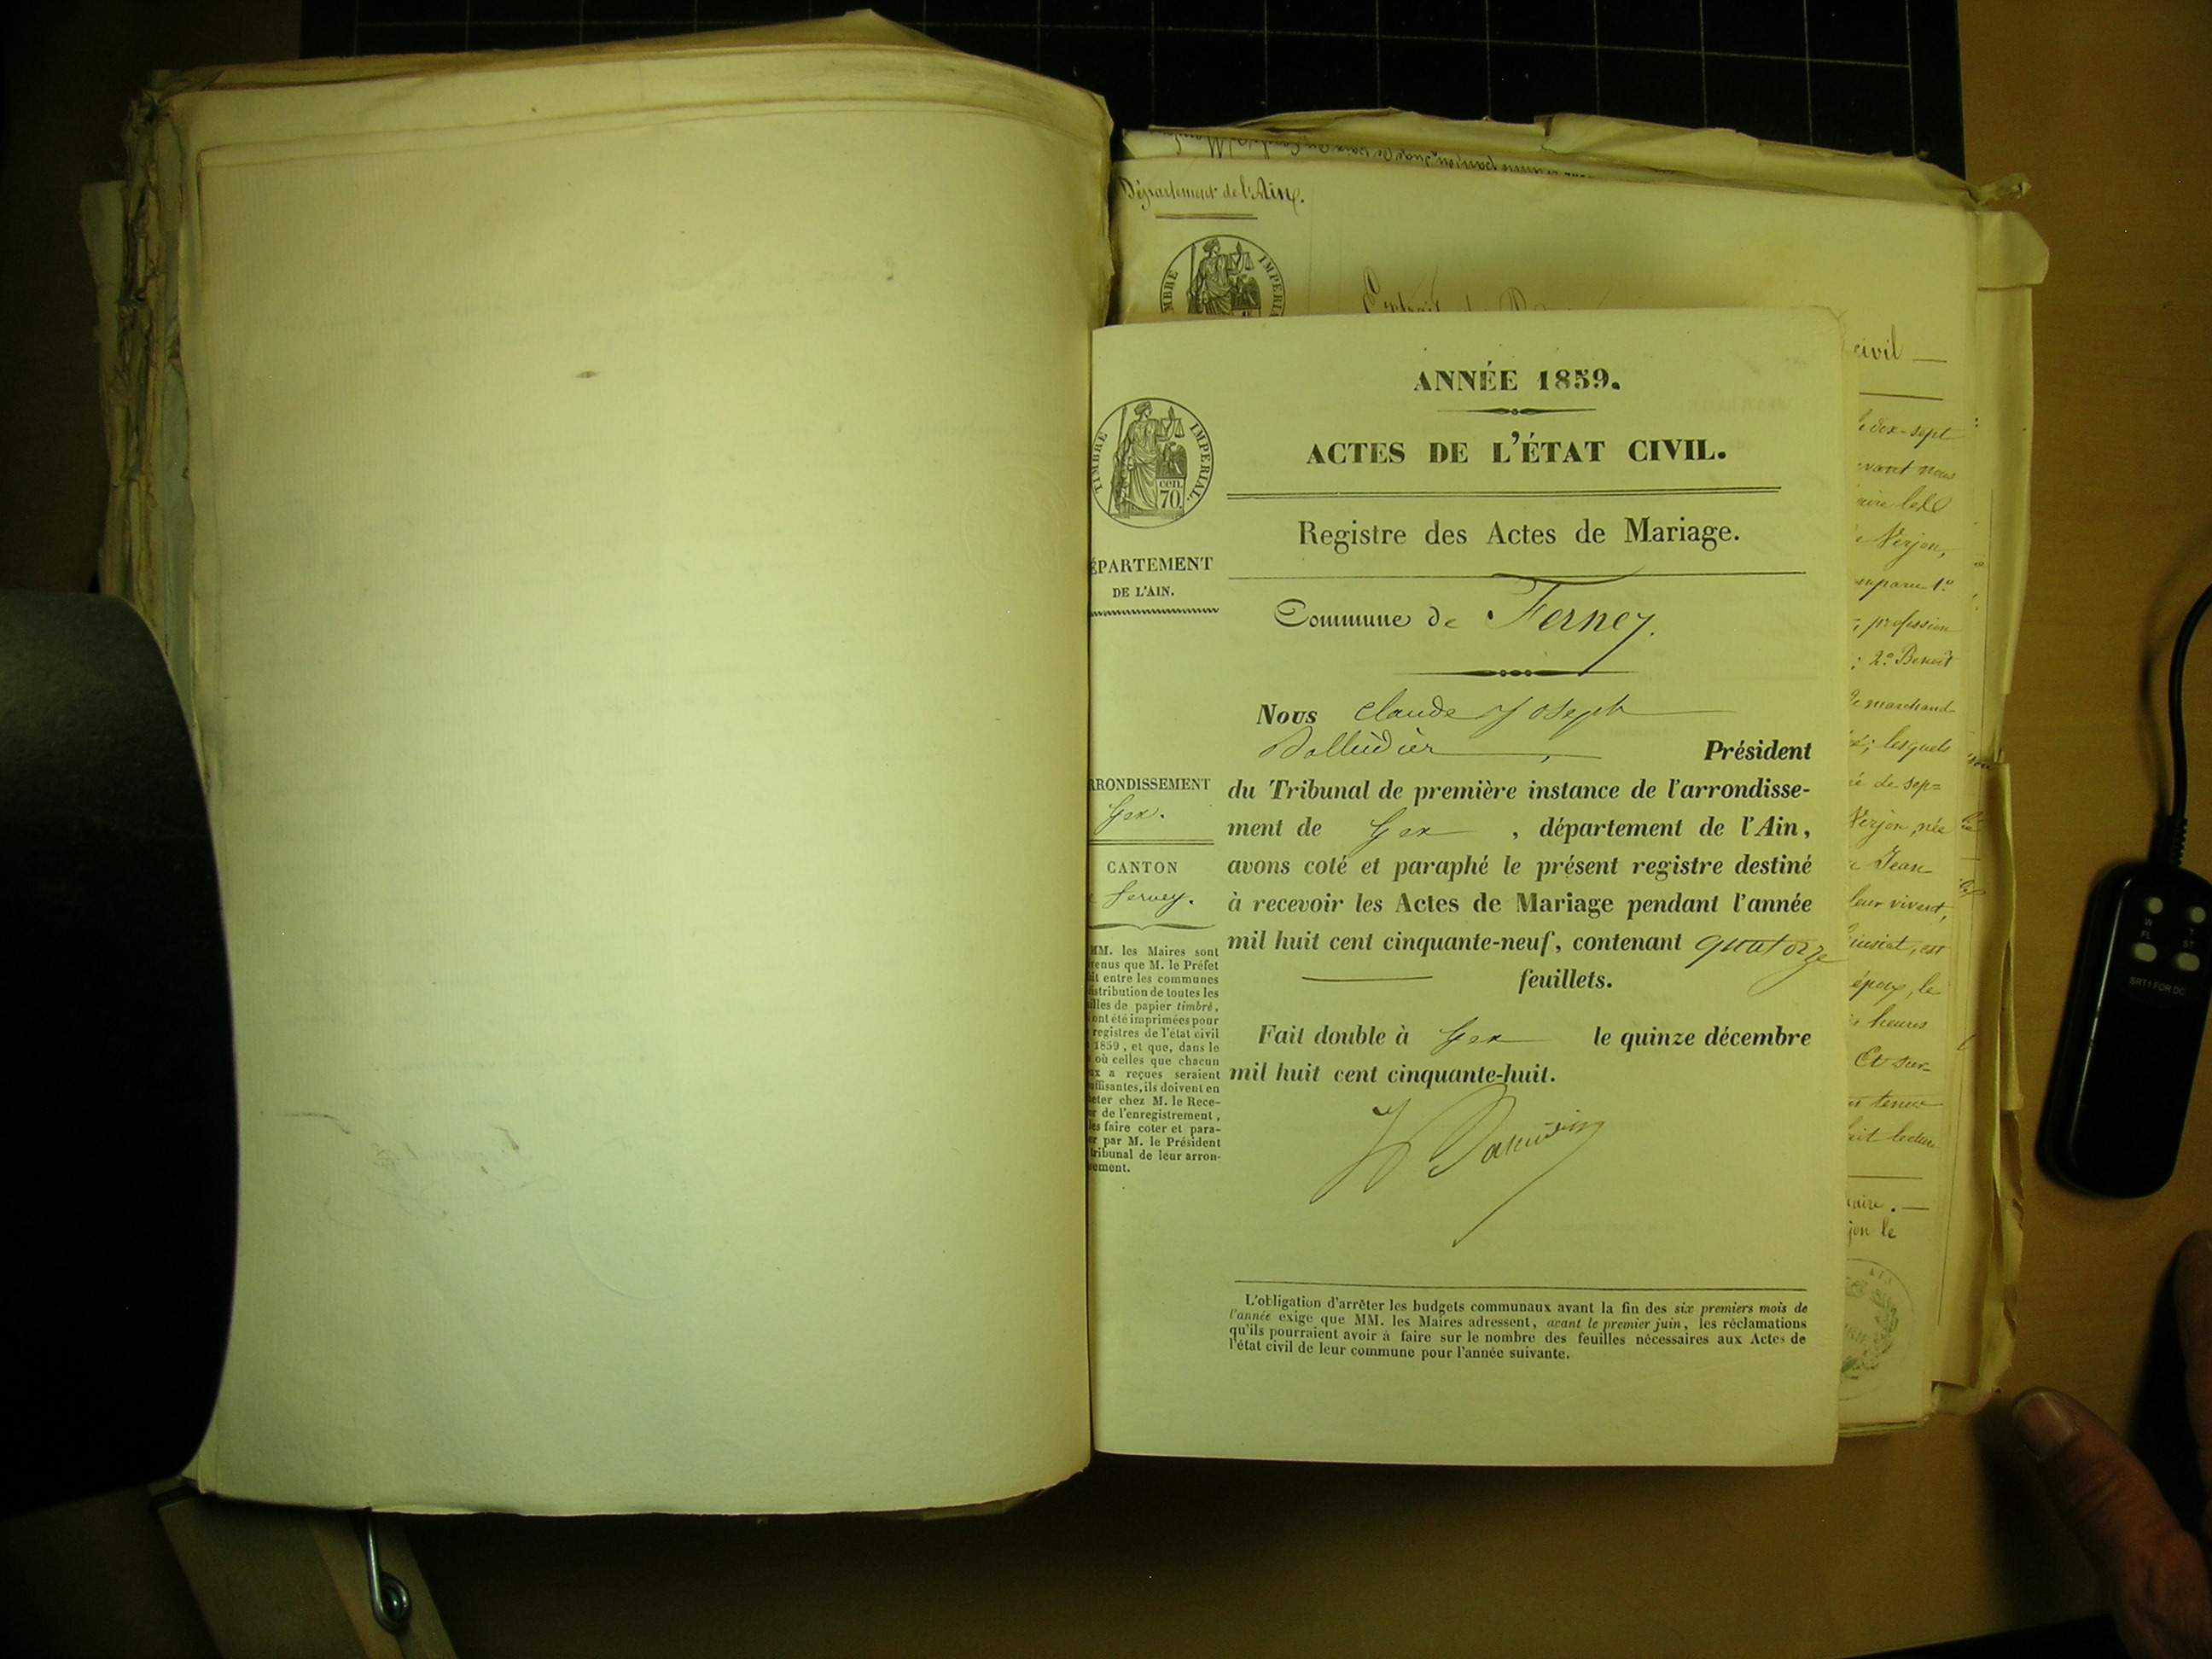 Département de l'Ain.
TIMBRE IMPERIAL
civil
ANNÉE 1859.
ACTES DE L'ÉTAT CIVIL.
TIMBRE IMPERIAL.
cen.
70.
Registre des Actes de Mariage.
ÉPARTEMENT
DE L'AIN.
Commune de Ferney.
Nous Claude Joseph
Président
RRONDISSEMENT
Gex.
du Tribunal de première instance de l'arrondisse-
ment de Gex, département de l'Ain,
CANTON
Ferney.
avons coté et paraphé le présent registre destiné
à recevoir les Actes de Mariage pendant l'année
mil huit cent cinquante-neuf, contenant quatorze
feuillets.
Fait double à Gex le quinze décembre
mil huit cent cinquante-huit.
MM. les Maires sont
venus que M. le Préfet
ait entre les communes
istribution de toutes les
illes de papier timbré,
ont été imprimées pour
registres de l'état civil
1859, et que, dans le
où celles que chacun
ux a reçues seraient
uffisantes, ils doivent en
eter chez M. le Rece-
ur de l'enregistrement,
les faire coter et para-
er par M. le Président
tribunal de leur arron-
ement.
L'obligation d'arrêter les budgets communaux avant la fin des six premiers mois de
l'année exige que MM. les Maires adressent, avant le premier juin, les réclamations
qu'ils pourraient avoir à faire sur le nombre des feuilles nécessaires aux Actes de
l'état civil de leur commune pour l'année suivante.
dix-sept
vant nous
Verjon,
mparu 1º
profession
: 2º Benoit
marchand
; lesquels
é de sep=
Verjon, née
Jean
leur vivant,
est
époux, le
heures
Et sur-
tenue
lecture
maire.
jon le
W T
FL ST
SRT1 FOR DC